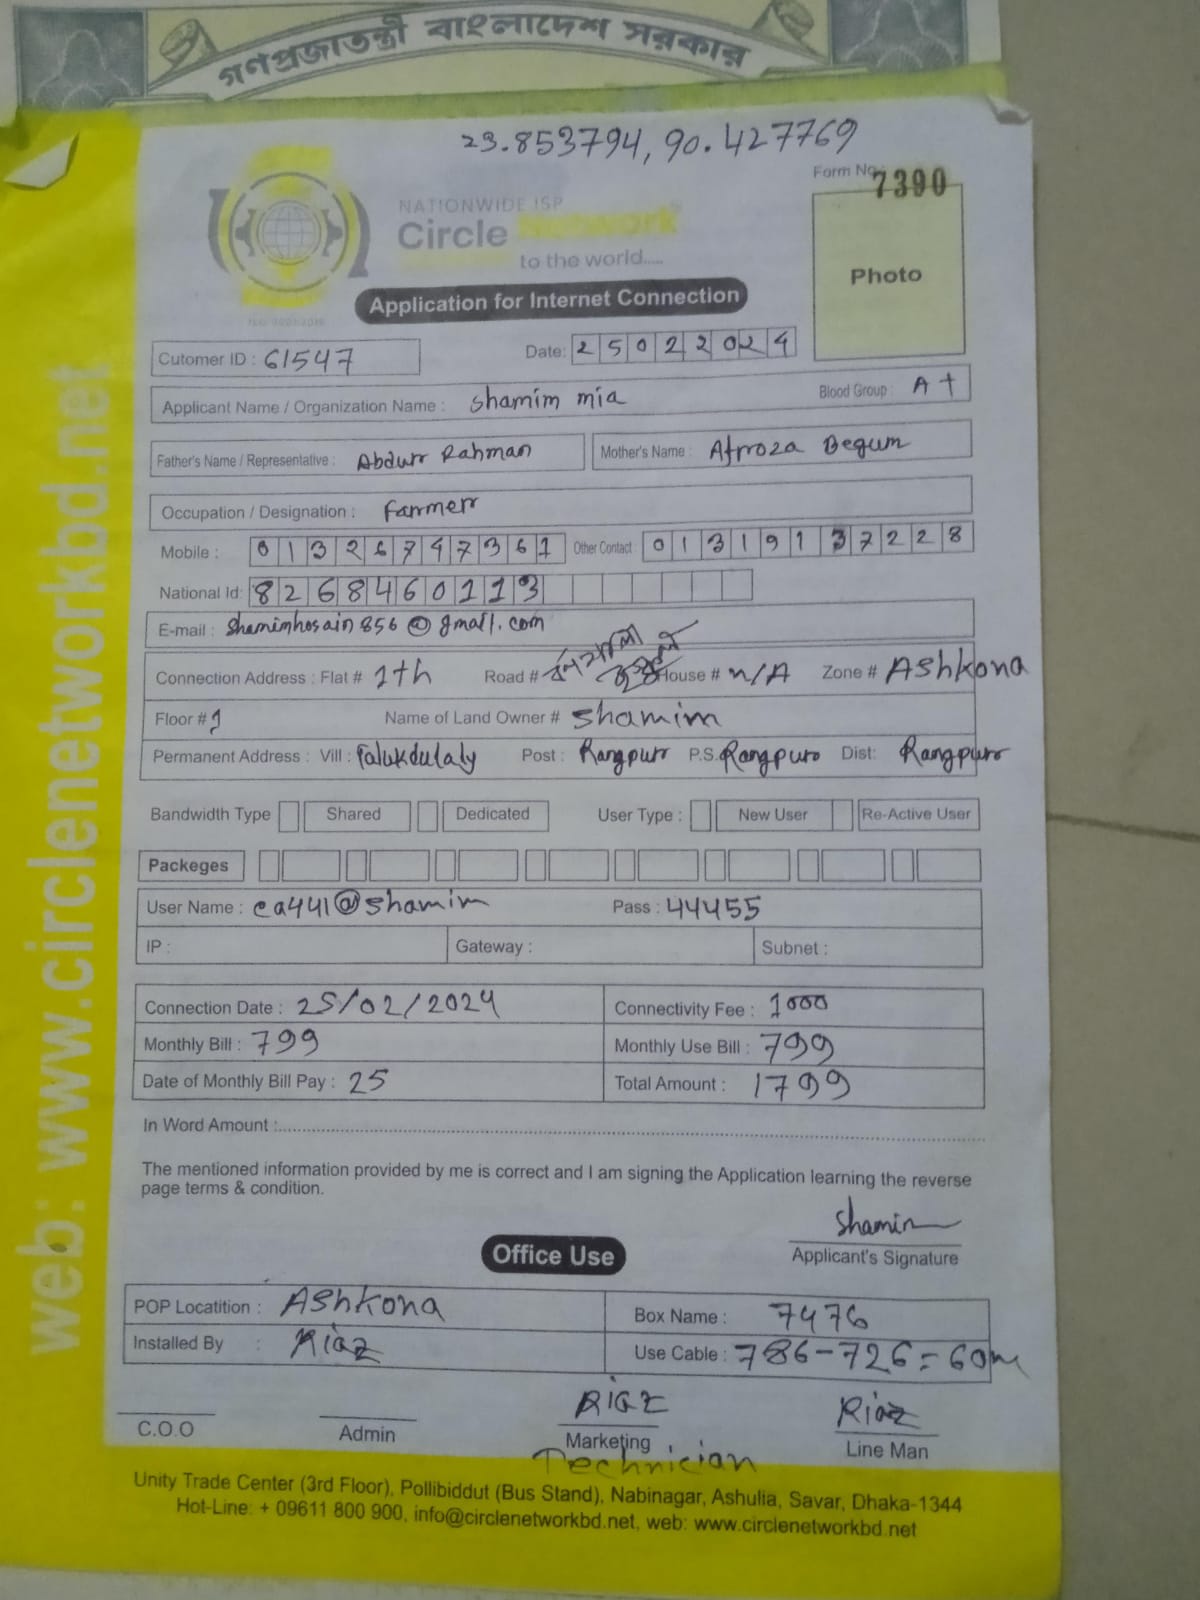 গণপ্রজাতন্ত্রী বাংলাদেশ সরকার
23.853794, 90.427769
Form No. 7390
NATIONWIDE ISP
Circle Network
to the world.....
Photo
Application for Internet Connection
Cutomer ID : 61547
Date: 25022024
Applicant Name / Organization Name : Shamim mia
Blood Group : A+
Father's Name / Representative : Abdur Rahman
Mother's Name : Afroza Begum
Occupation / Designation : Farmer
Mobile : 01326747361 Other Contact : 01319137228
National Id: 8268460113
E-mail : Shamimhosain856@gmail.com
Connection Address : Flat # 1th Road # House # n/A Zone # Ashkona
Floor # 1 Name of Land Owner # Shamim
Permanent Address : Vill : Talukdulaly Post : Rangpur P.S. Rangpur Dist: Rangpur
Bandwidth Type Shared Dedicated User Type : New User Re-Active User
Packeges
User Name : ca441@shamim Pass : 44455
IP : Gateway : Subnet :
Connection Date : 25/02/2024 Connectivity Fee : 1000
Monthly Bill : 799 Monthly Use Bill : 799
Date of Monthly Bill Pay : 25 Total Amount : 1799
In Word Amount :
The mentioned information provided by me is correct and I am signing the Application learning the reverse
page terms & condition.
Shamim
Applicant's Signature
Office Use
POP Locatition : Ashkona Box Name : 7476
Installed By : Riaz Use Cable : 786-726=60m
Riaz Riaz
C.O.O Admin Marketing Line Man
Technician
Unity Trade Center (3rd Floor), Pollibiddut (Bus Stand), Nabinagar, Ashulia, Savar, Dhaka-1344
Hot-Line: + 09611 800 900, info@circlenetworkbd.net, web: www.circlenetworkbd.net
web: www.circlenetworkbd.net